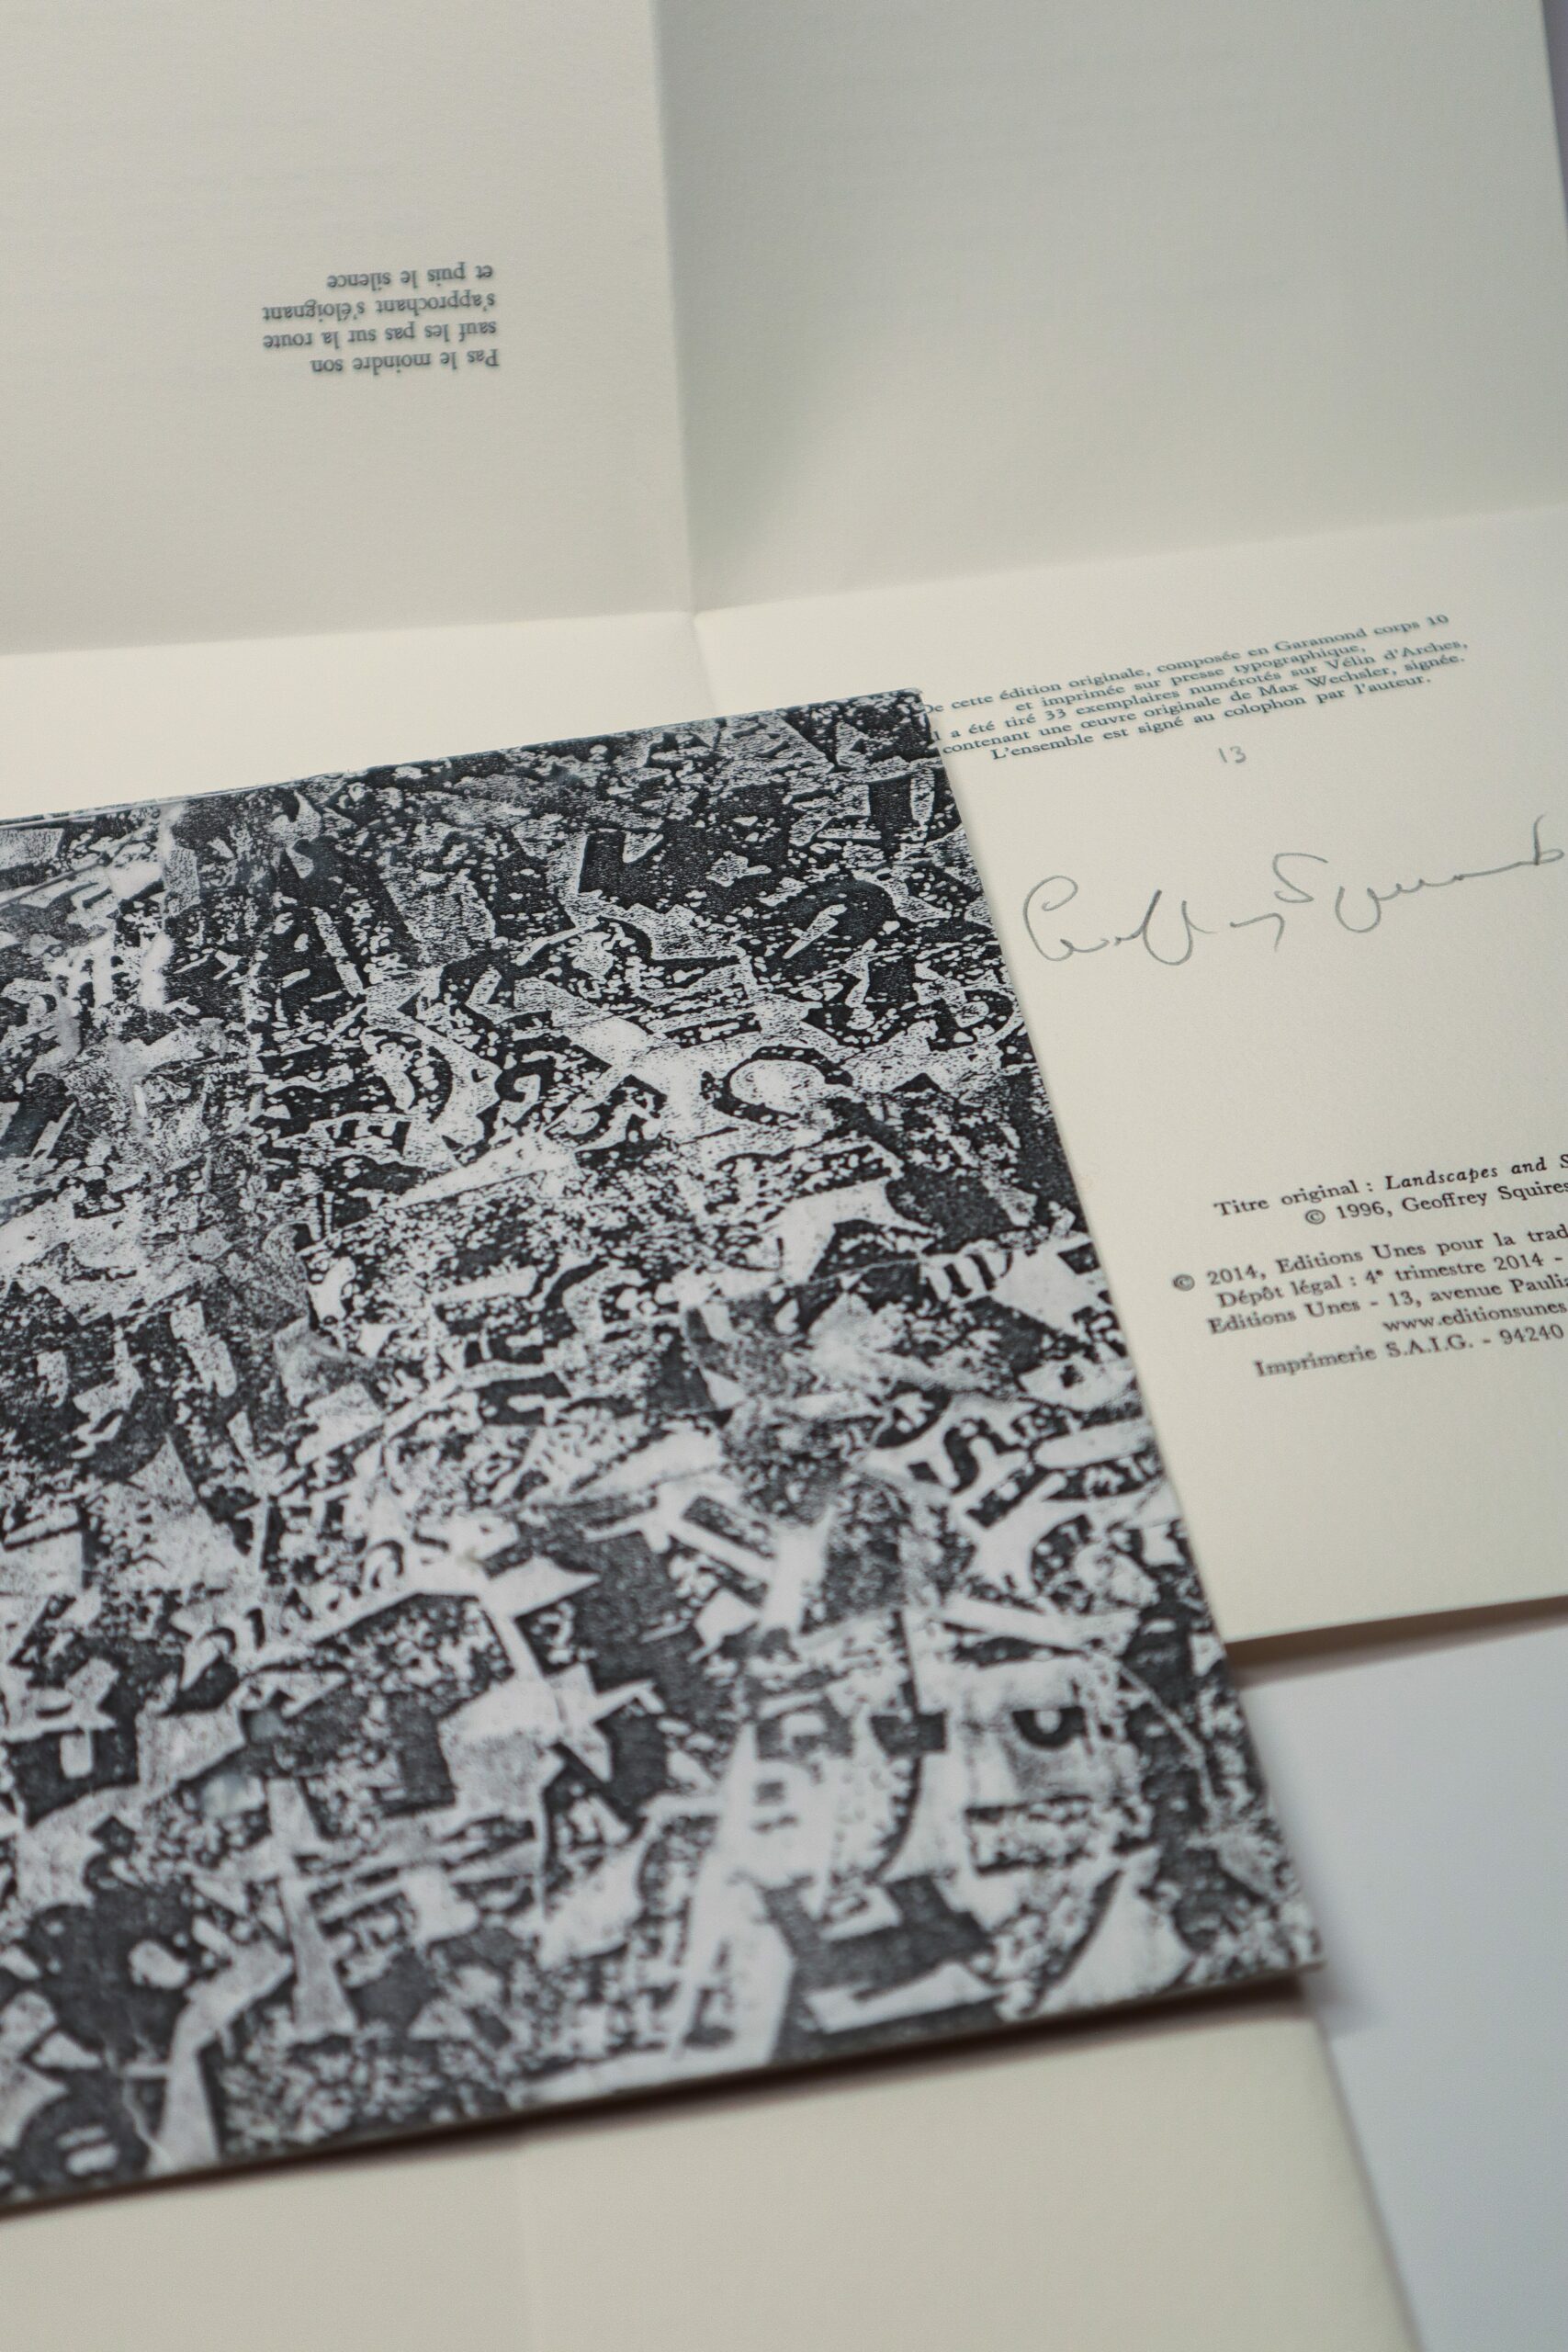 Pas le moindre son
sauf les pas sur la route
s'approchant s'éloignant
et puis le silence
De cette édition originale, composée en Garamond corps 10
et imprimée sur presse typographique,
il a été tiré 33 exemplaires numérotés sur Vélin d'Arches,
contenant une œuvre originale de Max Wechsler, signée.
L'ensemble est signé au colophon par l'auteur.
13
Titre original : Landscapes and S
© 1996, Geoffrey Squires
© 2014, Editions Unes pour la trad
Dépôt légal : 4e trimestre 2014 -
Editions Unes - 13, avenue Paulia
www.editionsunes.
Imprimerie S.A.I.G. - 94240